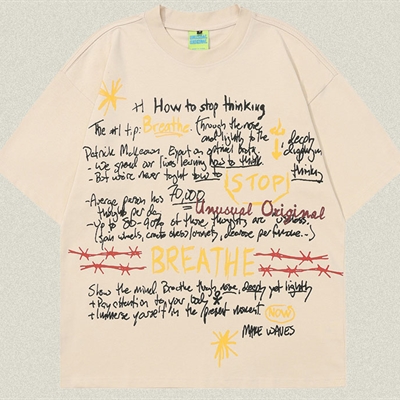 How to stop thinking
The #1 tip: Breathe. Through the nose,
and lightly to the
deeply
diaphragm
Patrick McKeown. Expert on optimal breath.
- We spend our lives learning how to think
- But we're never taught how to STOP thinking
- Average person has 70,000
thoughts per day
Unusual Original
- Up to 80-90% of those thoughts are useless
(spin wheels, create stress/anxiety, decrease performance...)
BREATHE
Slow the mind. Breathe through nose, deeply yet lightly
+ Pay attention to your body
+ Immerse yourself in the present moment NOW
MAKE WAVES